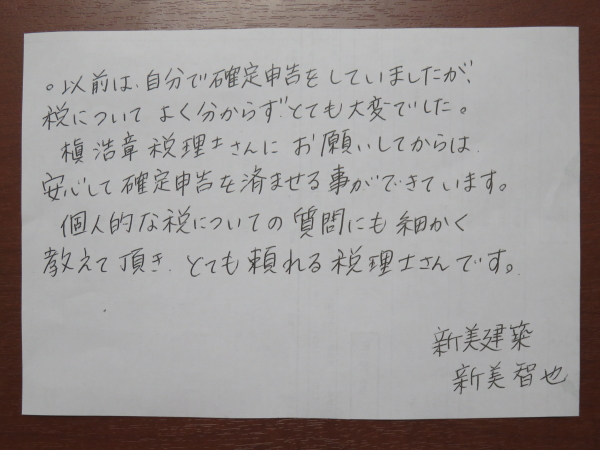 。以前は、自分で確定申告をしていましたが、
税について よく分からず、とても大変でした。
槇浩章税理士さんに お願いしてからは、
安心して確定申告を済ませる事ができています。
個人的な税についての質問にも細かく
教えて頂き、とても頼れる税理士さんです。
新美建築
新美智也